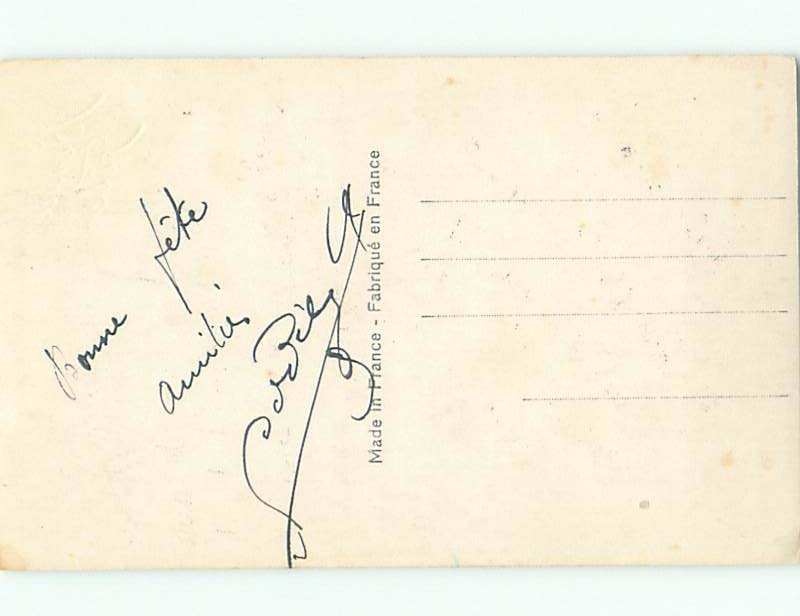 Bonne fête
amitiés
Made in France - Fabriqué en France